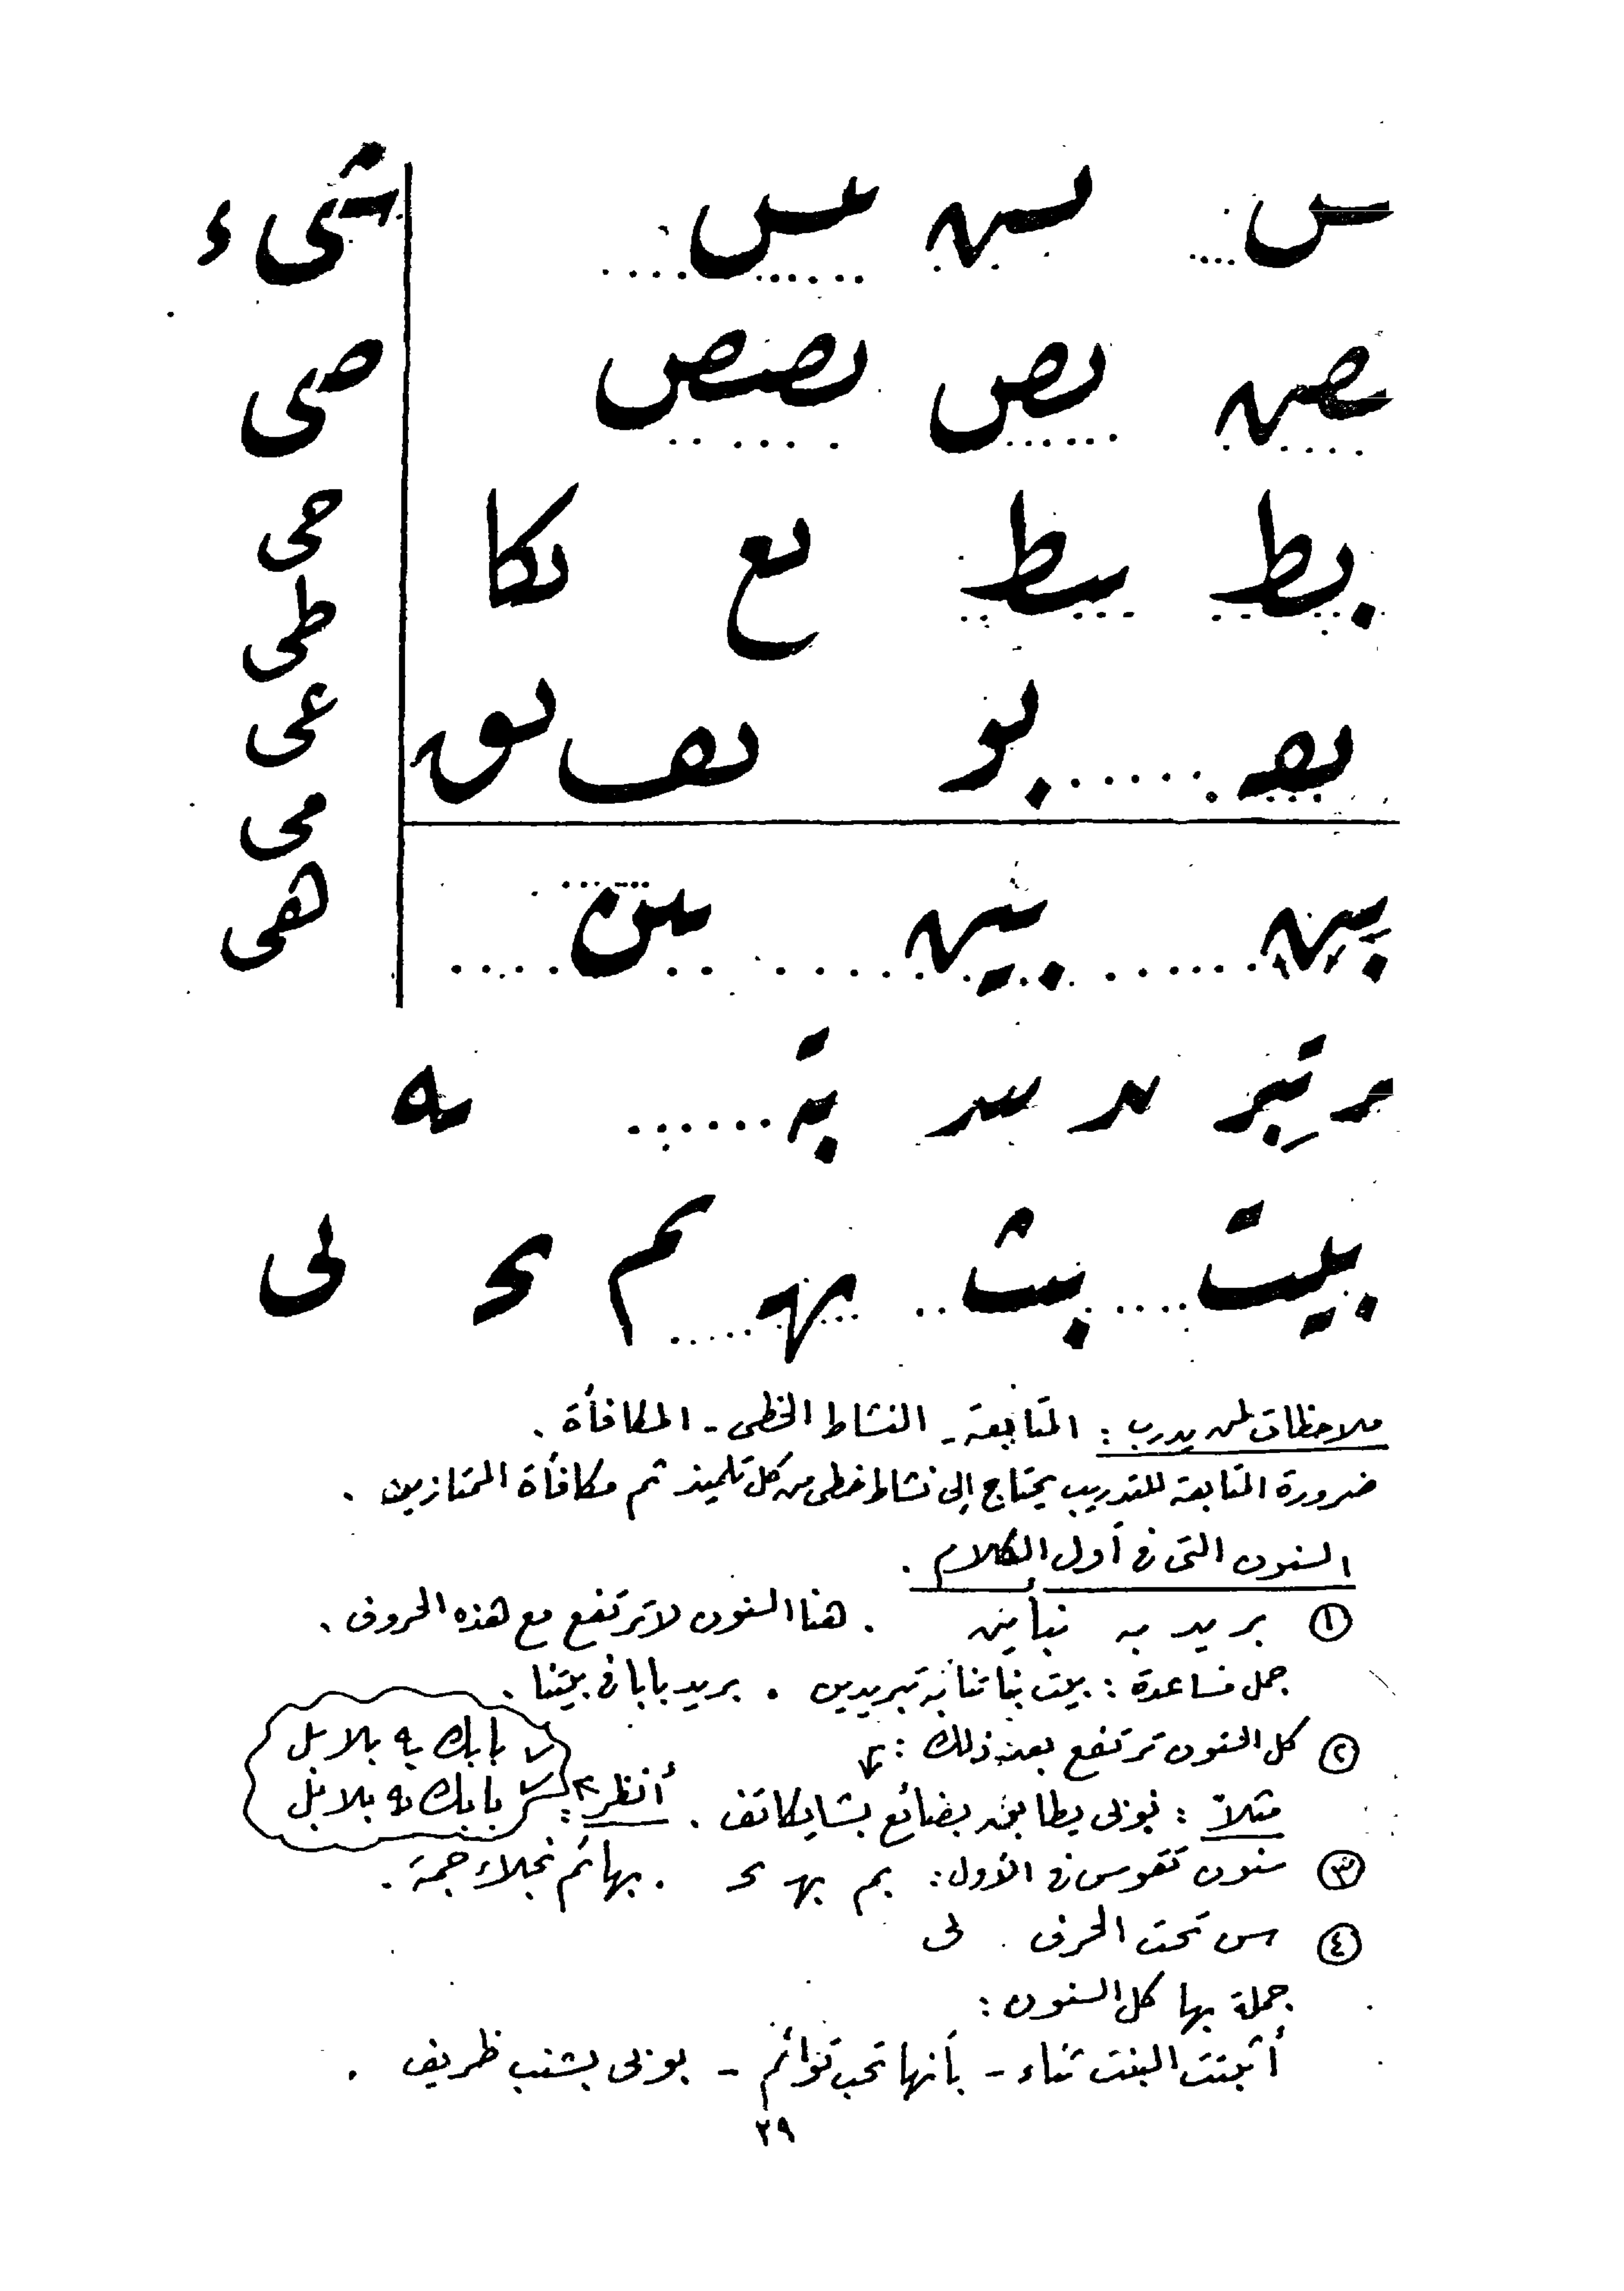 س سه سس
صه بص بصص
بط سط بع بكا
بعـ بو بف بق
شىء
صى
حى
طى
عى
مى
هى
بين بيين سن
تبر ية
بيت بث لى
ملاحظات لمن يدرب : المتابعة - النشاط الخطى - المكافأة .
ضرورة المتابعة للتدريب يحتاج إلى نشاط خطى من كل تلميذ ثم مكافأة الممتازين .
السنون التى فى أول الكلام .
١ بر يد به نباين . هنا السنون لا ترتفع مع هذه الحروف .
جمل مساعدة : بيت بناتنا به تبريدين . يريد بابا فى بيتنا .
٢ كل السنون ترتفع بعد ذلك :
مثلاً : نوبى يطابق بضائع بشايكاتف . أنظر :
بابك به بلابل
بابك به بلابل
٣ سنون تقوس فى الأول : بم بهـ بحـ . بهائم نجلاء جمة .
٤ س تحت الحرف لى
جملة بها كل السنون :
أثبتت البنت ثناء - بأنها تحب توائم - بوبى بشنب ظريف .
٢٩